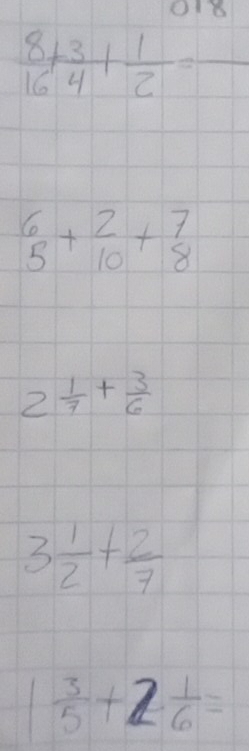 8/16 + 3/4 + 1/2 =
6/5 + 2/10 + 7/8
2 1/7 + 3/6
3 1/2 + 2/7
1 3/5 + 2 1/6 =